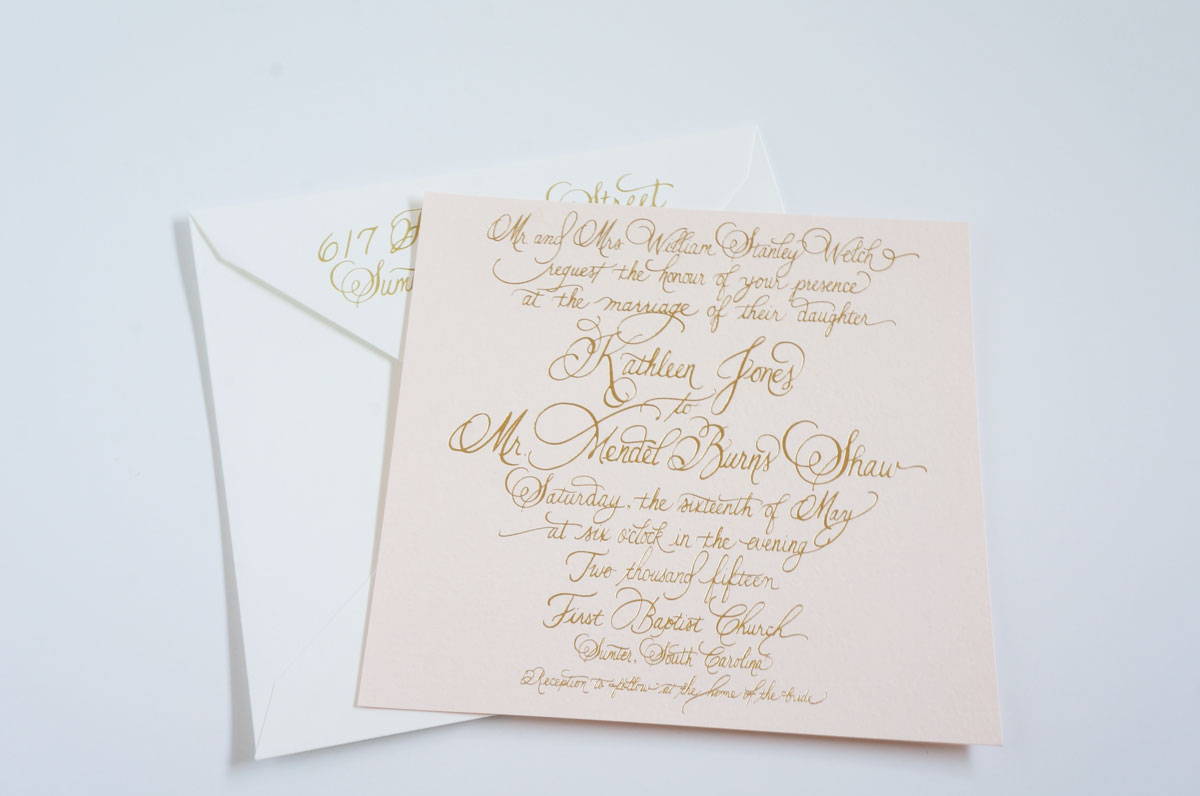 Street
617
Mr. and Mrs. William Stanley Welch
request the honour of your presence
at the marriage of their daughter
Kathleen Jones
to
Mr. Mendel Burns Shaw
Saturday, the sixteenth of May
at six o'clock in the evening
Two thousand fifteen
First Baptist Church
Sumter, South Carolina
Reception to follow at the home of the bride